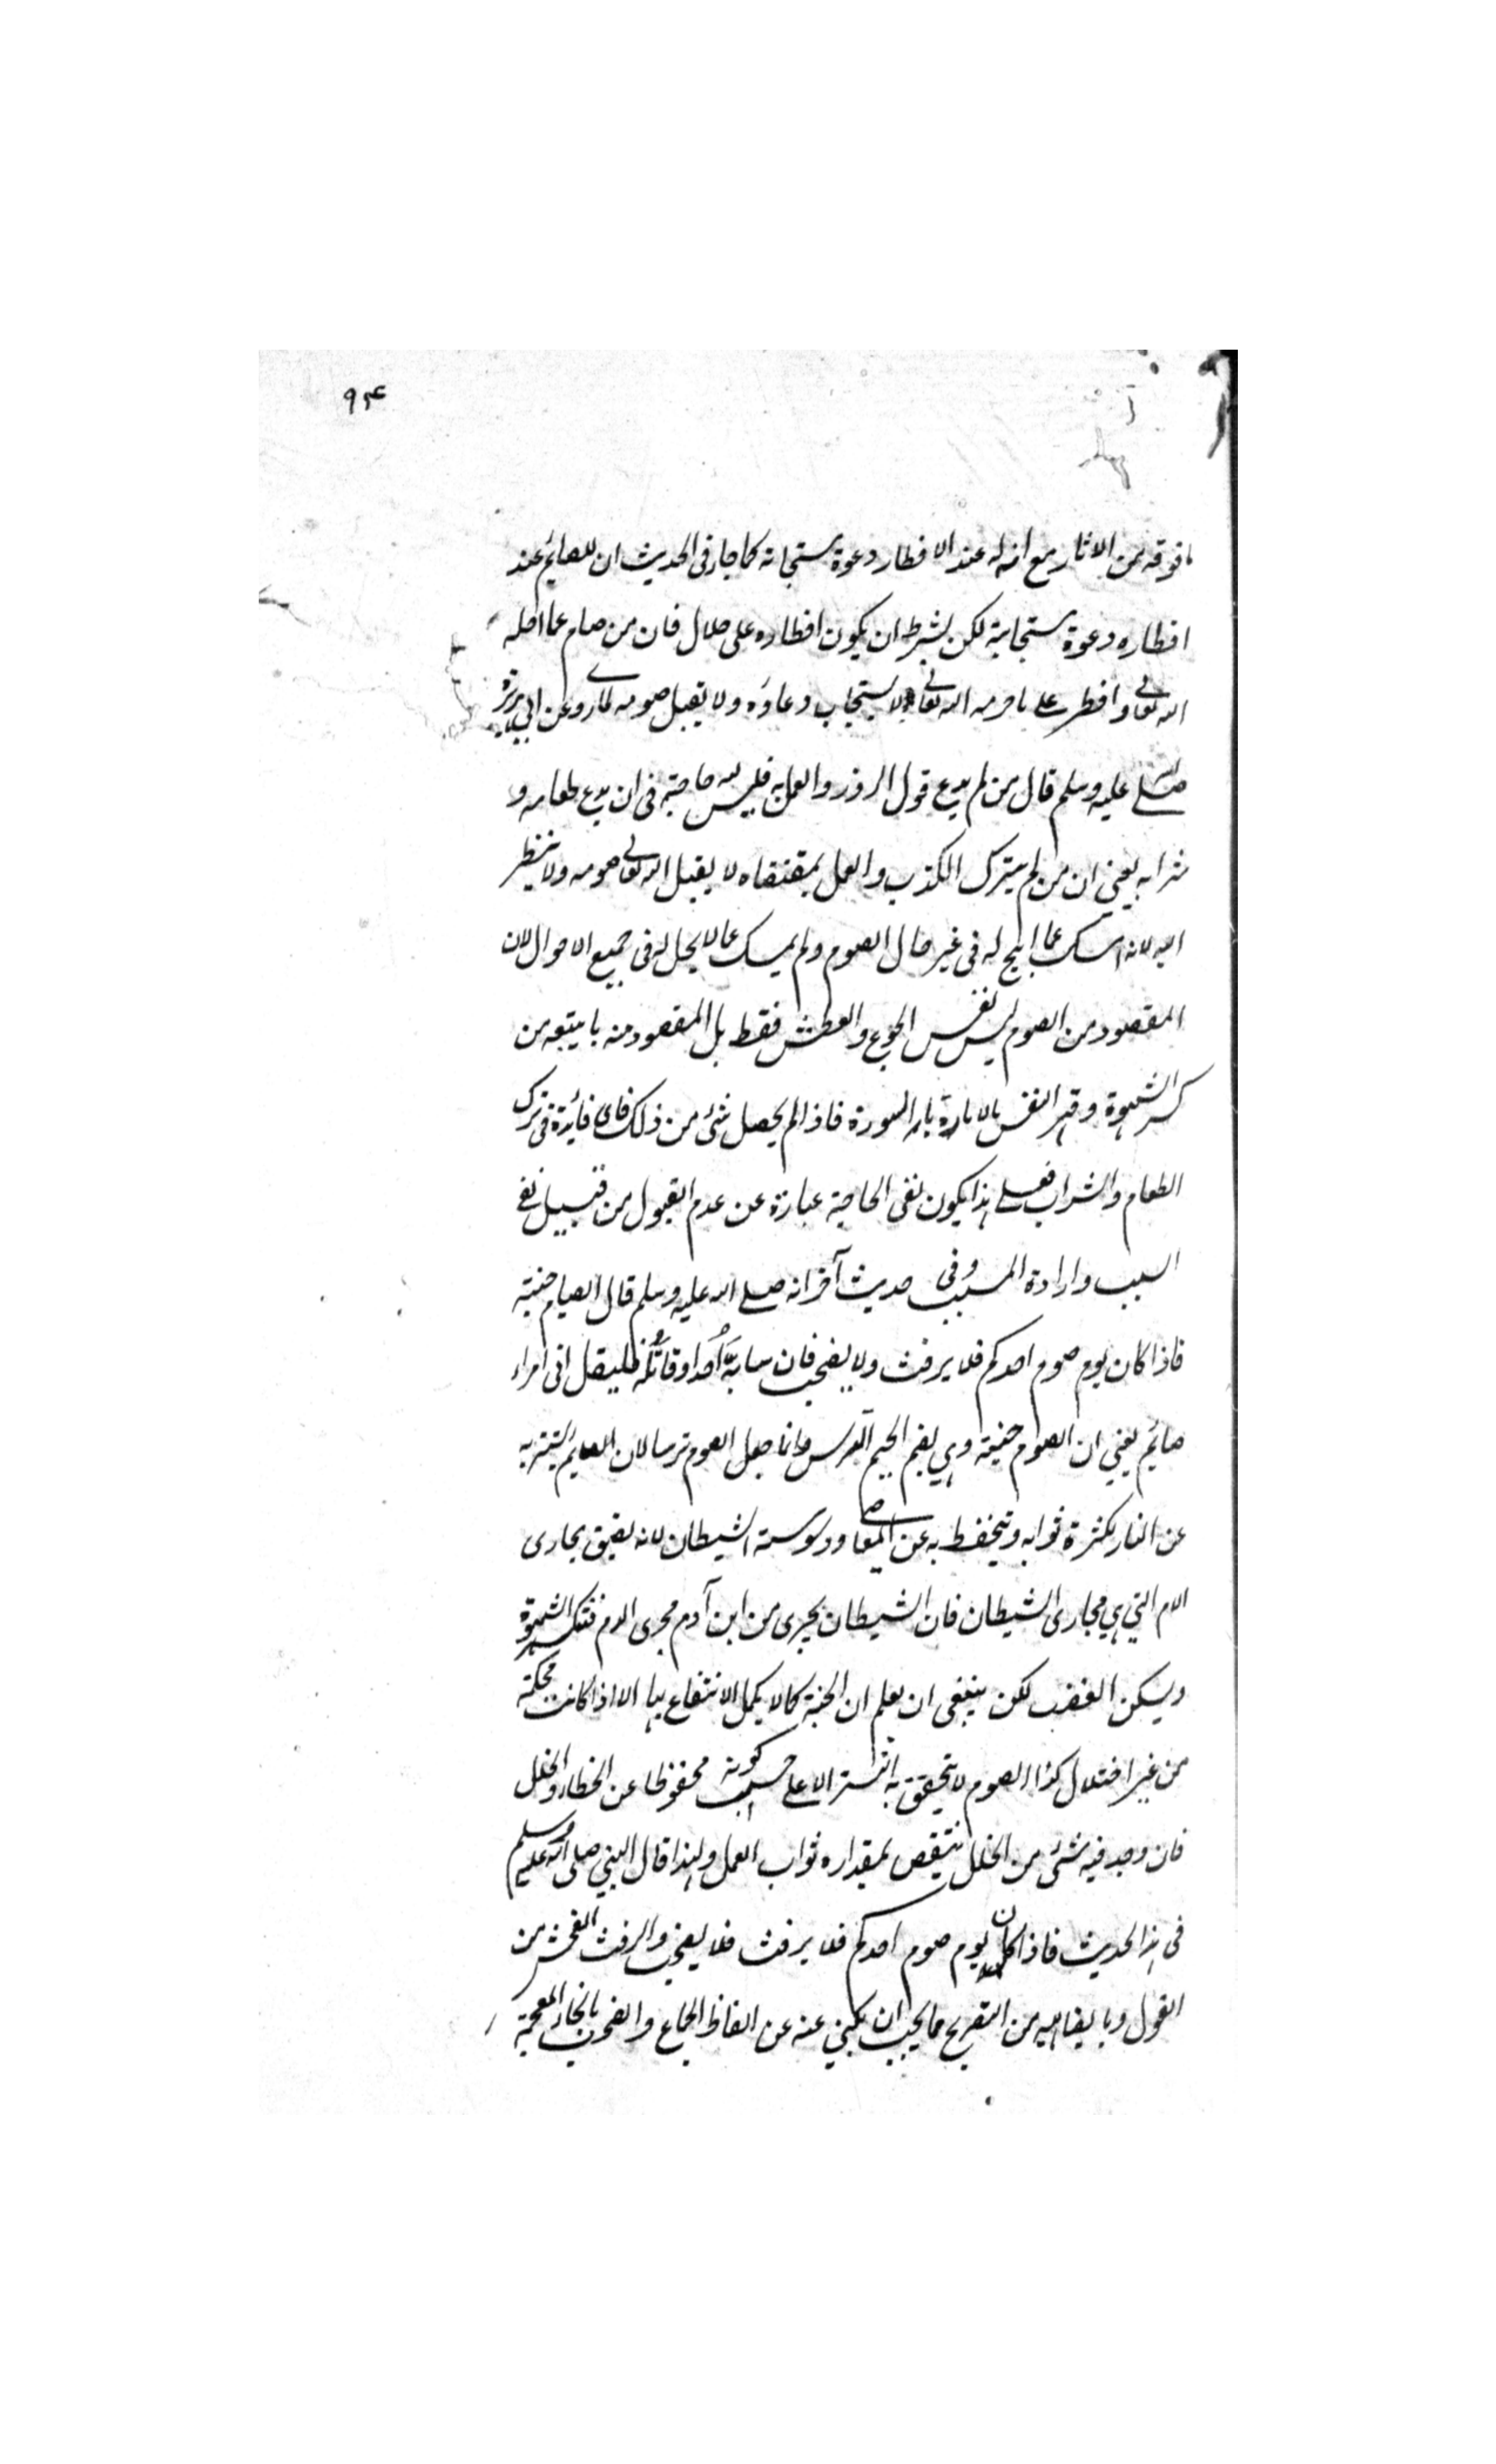 ٩٤
ما فوقه من الاثار مع انه له عند الافطار دعوة مستجابة كما جاء فى الحديث ان للصايم عند
افطاره دعوة مستجابة لكن بشرط ان يكون افطاره على حلال فان من صام عما احله
الله تعالى وافطر على ما حرمه الله تعالى لا يستجاب دعاؤه ولا يقبل صومه لما روى عن ابى هريرة
صلى عليه وسلم قال من لم يدع قول الزور والعمل به فليس لله حاجة فى ان يدع طعامه و
شرابه يعنى ان من لم يترك الكذب والعمل بمقتضاه لا يقبل الله تعالى صومه ولا ينظر
اليه لانه امسك عما ابيح له فى غير حال الصوم ولم يمسك عما لا يحل له فى جميع الاحوال لان
المقصود من الصوم ليس نفس الجوع والعطش فقط بل المقصود منه ما يتبعه من
كسر الشهوة وقهر النفس الامارة بالسوء فاذا لم يحصل شئ من ذلك فاى فائدة فى ترك
الطعام والشراب فعلى هذا يكون نفى الحاجة عبارة عن عدم القبول من قبيل نفى
السبب وارادة المسبب وفى حديث آخر انه صلى الله عليه وسلم قال الصيام جنة
فاذا كان يوم صوم احدكم فلا يرفث ولا يضخب فان سابه احد او قاتله فليقل انى امراء
صايم يعنى ان الصوم جنة وهى بضم الجيم الترس وانما جعل الصوم ترسا لان الصايم يستتر به
عن النار بكثرة ثوابه ويتحفظ به عن المعاصى ووسوسة الشيطان لانه يضيق مجارى
الدم التى هى مجارى الشيطان فان الشيطان يجرى من ابن آدم مجرى الدم فتنكسر الشهوة
ويسكن الغضب لكن ينبغى ان يعلم ان الجنة كما لا يكمل الانتفاع بها الا اذا كانت محكمة
من غير اختلال كذا الصوم لا يتحقق به التستر الا على حسب كونه محفوظا عن الخطاء والخلل
فان وجد فيه شئ من الخلل ينتقص بمقداره ثواب العمل ولهذا قال النبى صلى الله عليه وسلم
فى هذا الحديث فاذا كان يوم صوم احدكم فلا يرفث فلا يضخب والرفث الفحش من
القول وما يضاهيه من التصريح مما يجب ان يكنى عنه عن الفاظ الجماع والضخب بالخاء المعجمة